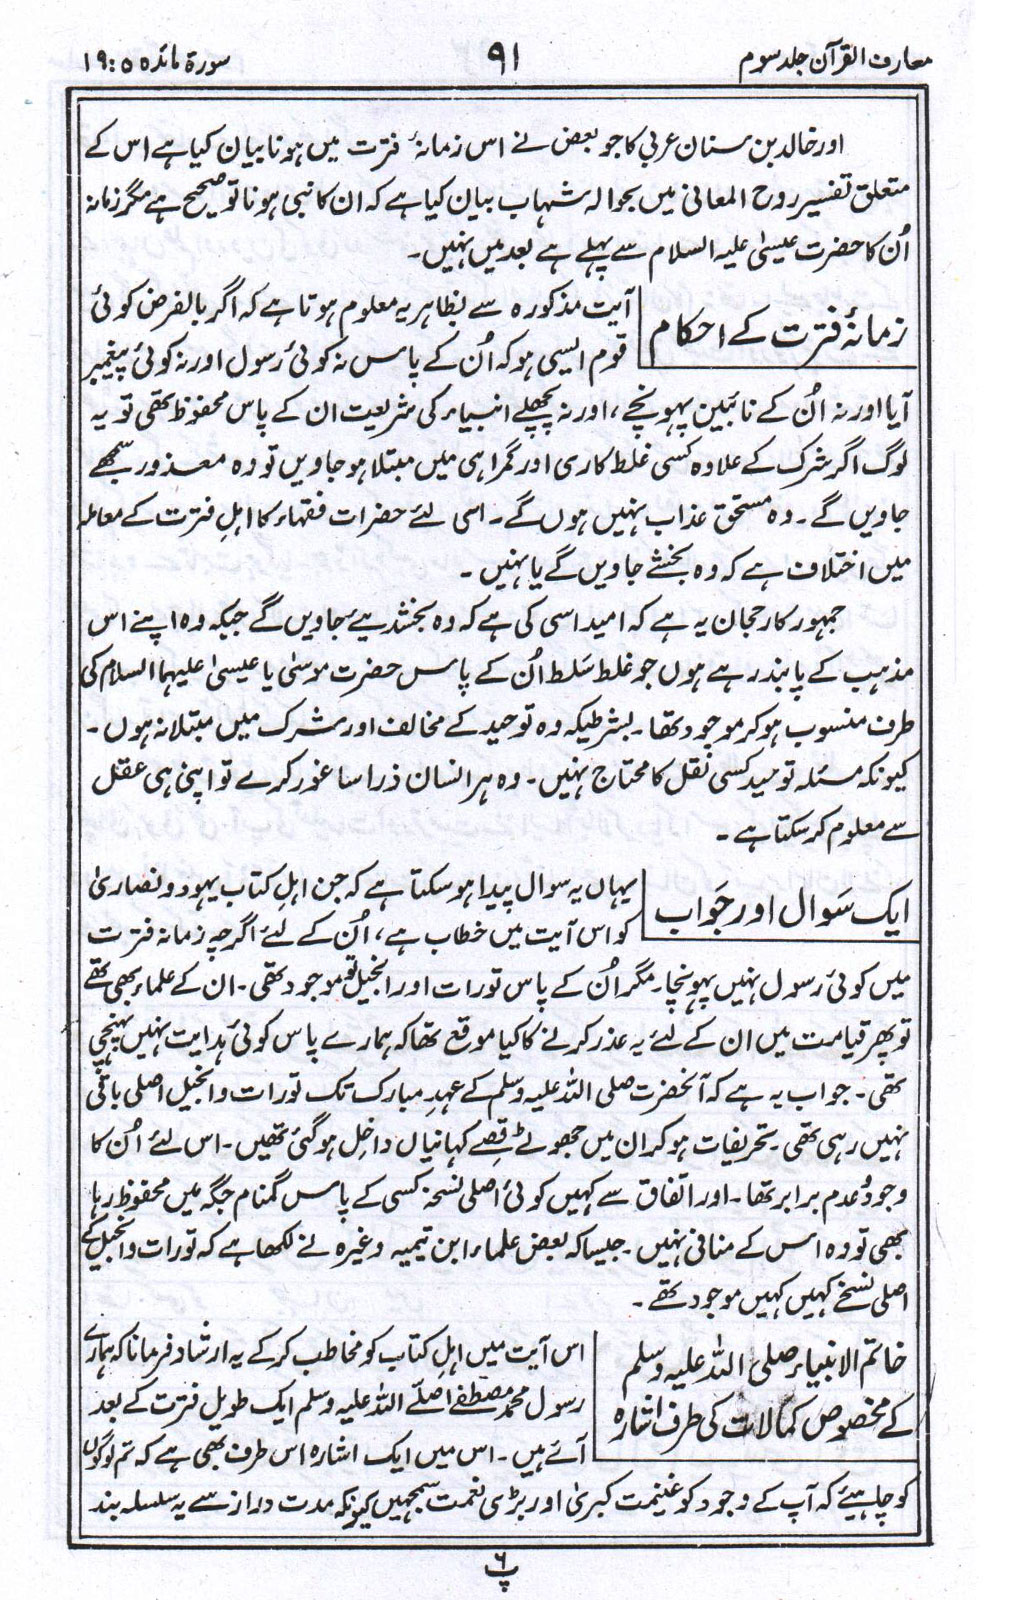 معارف القرآن جلد سوم
۹۱
سورۃ مائدہ ۵ : ۱۹
اور خالد بن سنان عربی کا جو بعض نے اس زمانۂ فترت میں ہونا بیان کیا ہے اس کے
متعلق تفسیر روح المعانی میں بحوالہ شہاب بیان کیا ہے کہ ان کا نبی ہونا تو صحیح ہے مگر زمانہ
اُن کا حضرت عیسیٰ علیہ السلام سے پہلے ہے بعد میں نہیں۔
زمانۂ فترت کے احکام
آیت مذکورہ سے بظاہر یہ معلوم ہوتا ہے کہ اگر بالفرض کوئی
قوم ایسی ہو کہ اُن کے پاس نہ کوئی رسول اور نہ کوئی پیغمبر
آیا اور نہ اُن کے نائبین پہونچے، اور نہ پچھلے انبیاء کی شریعت ان کے پاس محفوظ تھی تو یہ
لوگ اگر شرک کے علاوہ کسی غلط کاری اور گمراہی میں مبتلا ہو جاویں تو وہ معذور سمجھے
جاویں گے۔ وہ مستحق عذاب نہیں ہوں گے۔ اسی لئے حضرات فقہاء کا اہلِ فترت کے معاملہ
میں اختلاف ہے کہ وہ بخشے جاویں گے یا نہیں۔
جمہور کا رجحان یہ ہے کہ امید اسی کی ہے کہ وہ بخشدیئے جاویں گے جبکہ وہ اپنے اس
مذہب کے پابند رہے ہوں جو غلط سَلط اُن کے پاس حضرت موسیٰ یا عیسیٰ علیہما السلام کی
طرف منسوب ہو کر موجود تھا۔ بشرطیکہ وہ توحید کے مخالف اور شرک میں مبتلا نہ ہوں۔
کیونکہ مسئلہ توحید کسی نقل کا محتاج نہیں۔ وہ ہر انسان ذرا سا غور کرے تو اپنی ہی عقل
سے معلوم کر سکتا ہے۔
ایک سَوال اور جَواب
یہاں یہ سوال پیدا ہو سکتا ہے کہ جن اہلِ کتاب یہود و نصاریٰ
کو اس آیت میں خطاب ہے، اُن کے لئے اگرچہ زمانہ فترت
میں کوئی رسول نہیں پہونچا، مگر اُن کے پاس تورات اور انجیل تو موجود تھی۔ ان کے علماء بھی تھے
تو پھر قیامت میں ان کے لئے یہ عذر کرنے کا کیا موقع تھا کہ ہمارے پاس کوئی ہدایت نہیں پہنچی
تھی۔ جواب یہ ہے کہ آنحضرت صلی اللہ علیہ وسلم کے عہدِ مبارک تک تورات و انجیل اصلی باقی
نہیں رہی تھی۔ تحریفات ہو کر ان میں جھوٹے قصے کہانیاں داخل ہو گئی تھیں۔ اس لئے اُن کا
وجود و عدم برابر تھا۔ اور اتفاق سے کہیں کوئی اصلی نسخہ کسی کے پاس گمنام جگہ میں محفوظ رہا
بھی تو وہ اس کے منافی نہیں۔ جیسا کہ بعض علماء ابن تیمیہ وغیرہ نے لکھا ہے کہ تورات و انجیل کے
اصلی نسخے کہیں کہیں موجود تھے۔
خاتم الانبیاء صلی اللہ علیہ وسلم
کے مخصوص کمالات کی طرف اشارہ
اس آیت میں اہلِ کتاب کو مخاطب کر کے یہ ارشاد فرمانا کہ ہمارے
رسول محمد مصطفےٰ صلّے اللہ علیہ وسلم ایک طویل فترت کے بعد
آئے ہیں۔ اس میں ایک اشارہ اس طرف بھی ہے کہ تم لوگوں
کو چاہیئے کہ آپ کے وجود کو غنیمت کبریٰ اور بڑی نعمت سمجھیں کیونکہ مدت دراز سے یہ سلسلہ بند
پ۶